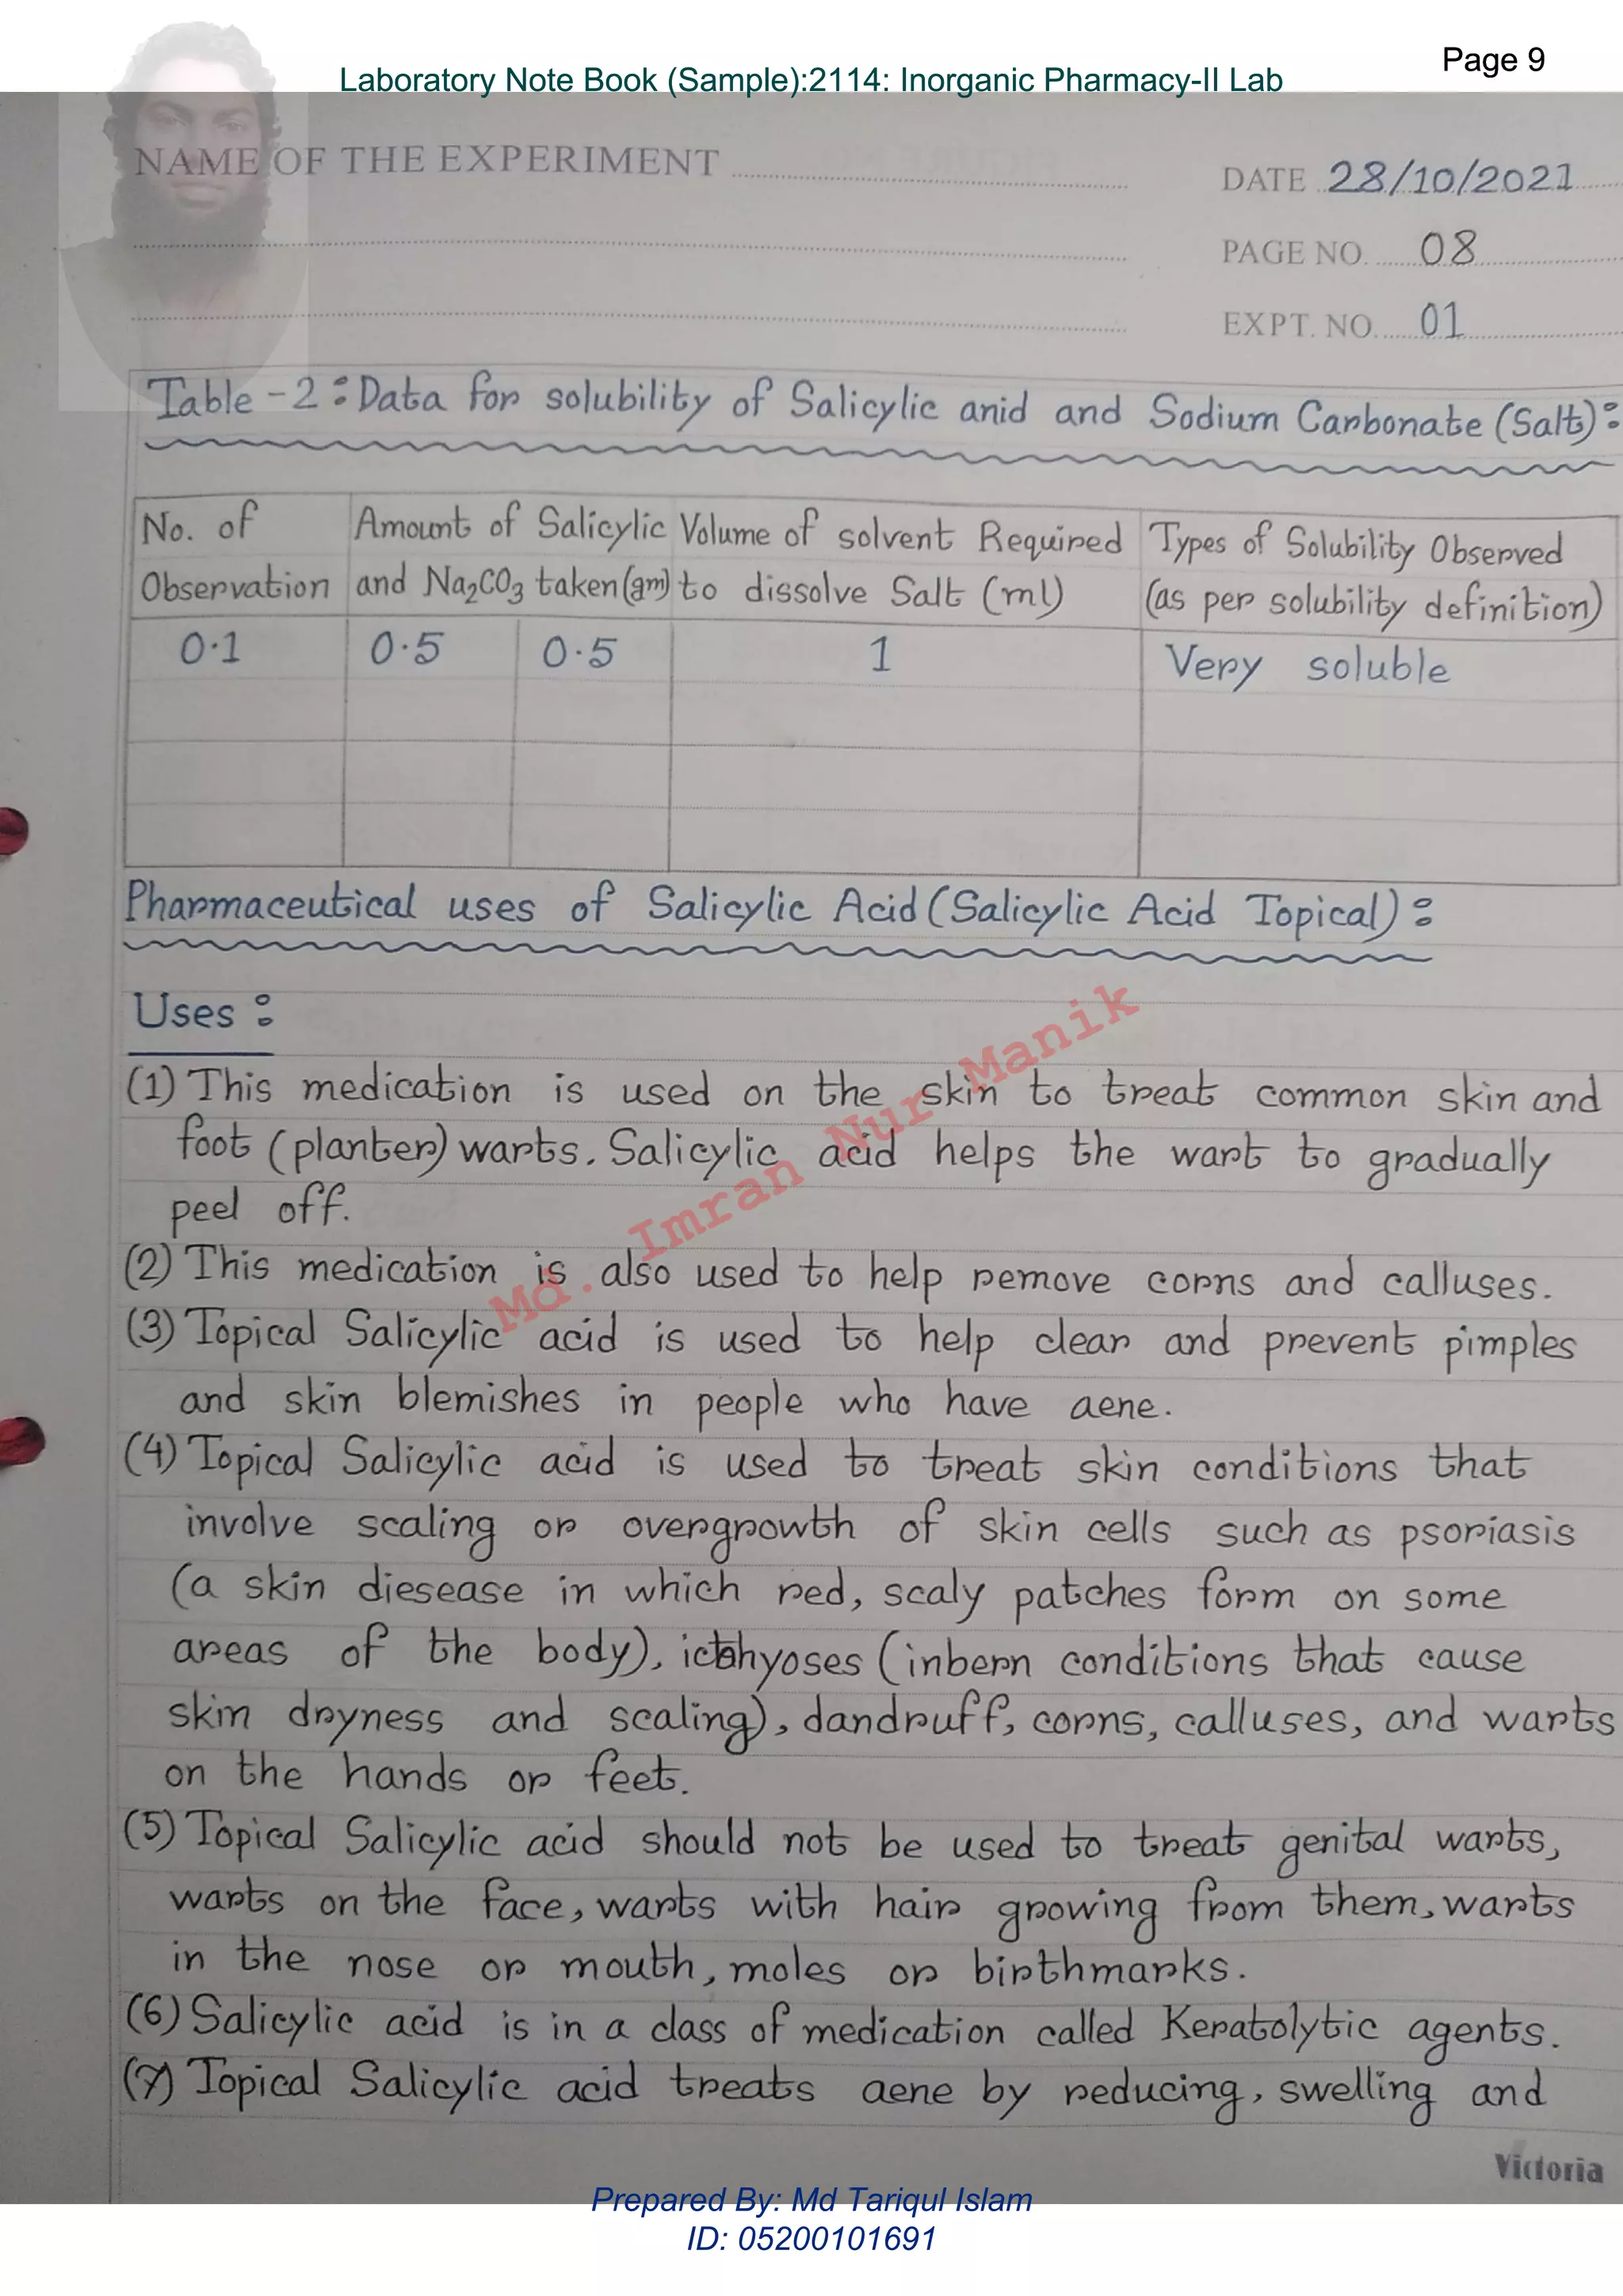 Page 9
Laboratory Note Book (Sample):2114: Inorganic Pharmacy-II Lab
NAME OF THE EXPERIMENT
DATE 28/10/2021
PAGE NO. 08
EXPT. NO. 01
Table-2: Data for solubility of Salicylic anid and Sodium Carbonate (Salt):
No. of Observation
Amount of Salicylic and Na₂CO₃ taken (gm)
Volume of solvent Required to dissolve Salt (ml)
Types of Solubility Observed (as per solubility definition)
0.1 0.5 0.5 1 Very soluble
Pharmaceutical uses of Salicylic Acid (Salicylic Acid Topical):
Uses:
(1) This medication is used on the skin to treat common skin and
foot (planter) warts. Salicylic acid helps the wart to gradually
peel off.
(2) This medication is also used to help remove corns and calluses.
(3) Topical Salicylic acid is used to help clear and prevent pimples
and skin blemishes in people who have acne.
(4) Topical Salicylic acid is used to treat skin conditions that
involve scaling or overgrowth of skin cells such as psoriasis
(a skin diesease in which red, scaly patches form on some
areas of the body), icthyoses (inbern conditions that cause
skin dryness and scaling), dandruff, corns, calluses, and warts
on the hands or feet.
(5) Topical Salicylic acid should not be used to treat genital warts,
warts on the face, warts with hair growing from them, warts
in the nose or mouth, moles or birthmarks.
(6) Salicylic acid is in a class of medication called Keratolytic agents.
(7) Topical Salicylic acid treats acne by reducing, swelling and
Md. Imran Nur Manik
Victoria
Prepared By: Md Tariqul Islam
ID: 05200101691